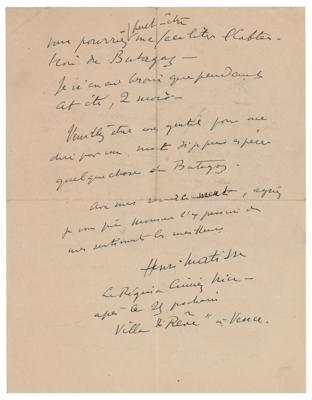 peut-être
vous pourriez me faciliter l'obten-
tion du Butagaz —
Je n'en ai besoin que pendant
cet été, 2 mois —
Veuillez être assez gentil pour me
dire par un mot si je peux espérer
quelque chose de Butagaz.
Avec mes, agréez
je vous prie Monsieur l'expression de
mes sentiments les meilleurs
Henri Matisse
Le Régina Cimiez Nice —
après le 25 prochain
Villa "le Rêve" à Vence.